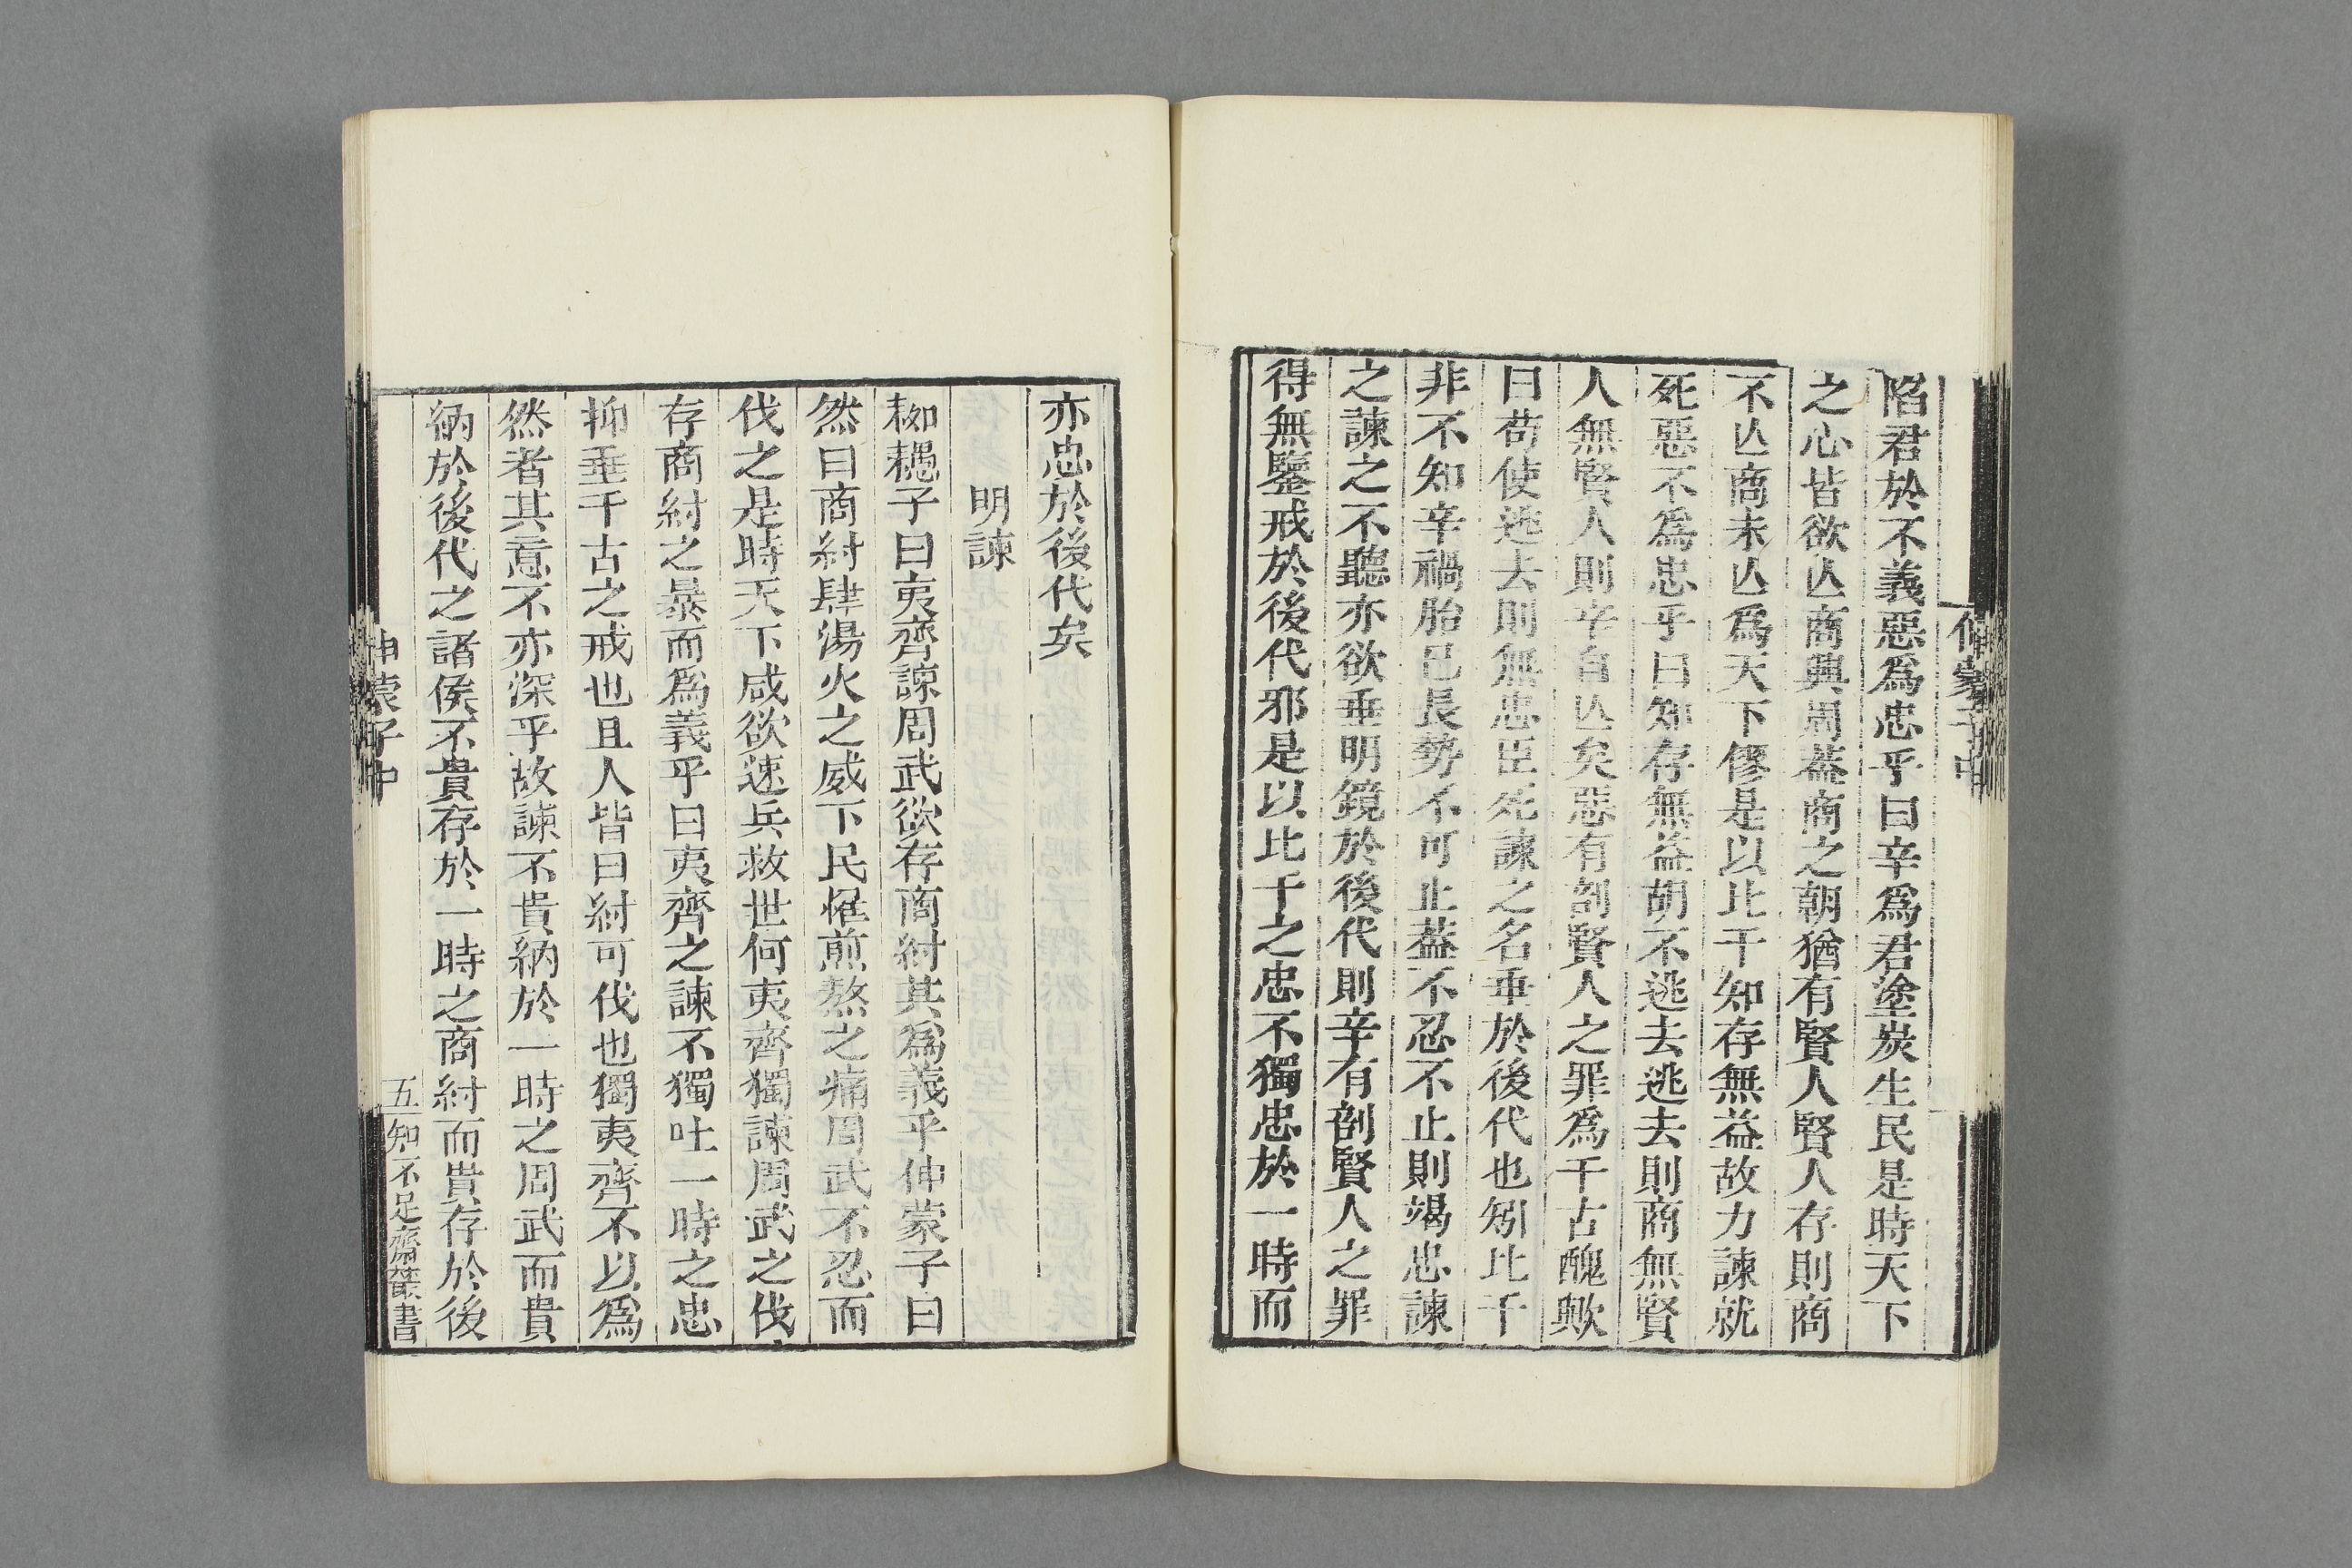 陷君於不義惡爲忠乎曰辛爲君塗炭生民是時天下
之心皆欲亾商興周葢商之朝猶有賢人賢人存則商
不亾商未亾爲天下僇是以比干知存無益故力諫就
死惡不爲忠乎曰知存無益胡不逃去逃去則商無賢
人無賢人則辛自亾矣惡有剖賢人之罪爲千古醜歟
曰苟使逃去則無忠臣死諫之名垂於後代也矧比干
非不知辛禍胎已長勢不可止葢不忍不止則竭忠諫
之諫之不聽亦欲垂明鏡於後代則辛有剖賢人之罪
得無鑒戒於後代邪是以比干之忠不獨忠於一時而
亦忠於後代矣
明諫
子曰夷齊諫周武欲存商紂其爲義乎伸蒙子曰
然曰商紂肆湯火之威下民罹煎熬之痛周武不忍而
伐之是時天下咸欲速兵救世何夷齊獨諫周武之伐
存商紂之暴而爲義乎曰夷齊之諫不獨吐一時之忠
抑垂千古之戒也且人皆曰紂可伐也獨夷齊不以爲
然者其意不亦深乎故諫不貴納於一時之周武而貴
納於後代之諸侯不貴存於一時之商紂而貴存於後
伸蒙子中
五
知不足齋叢書